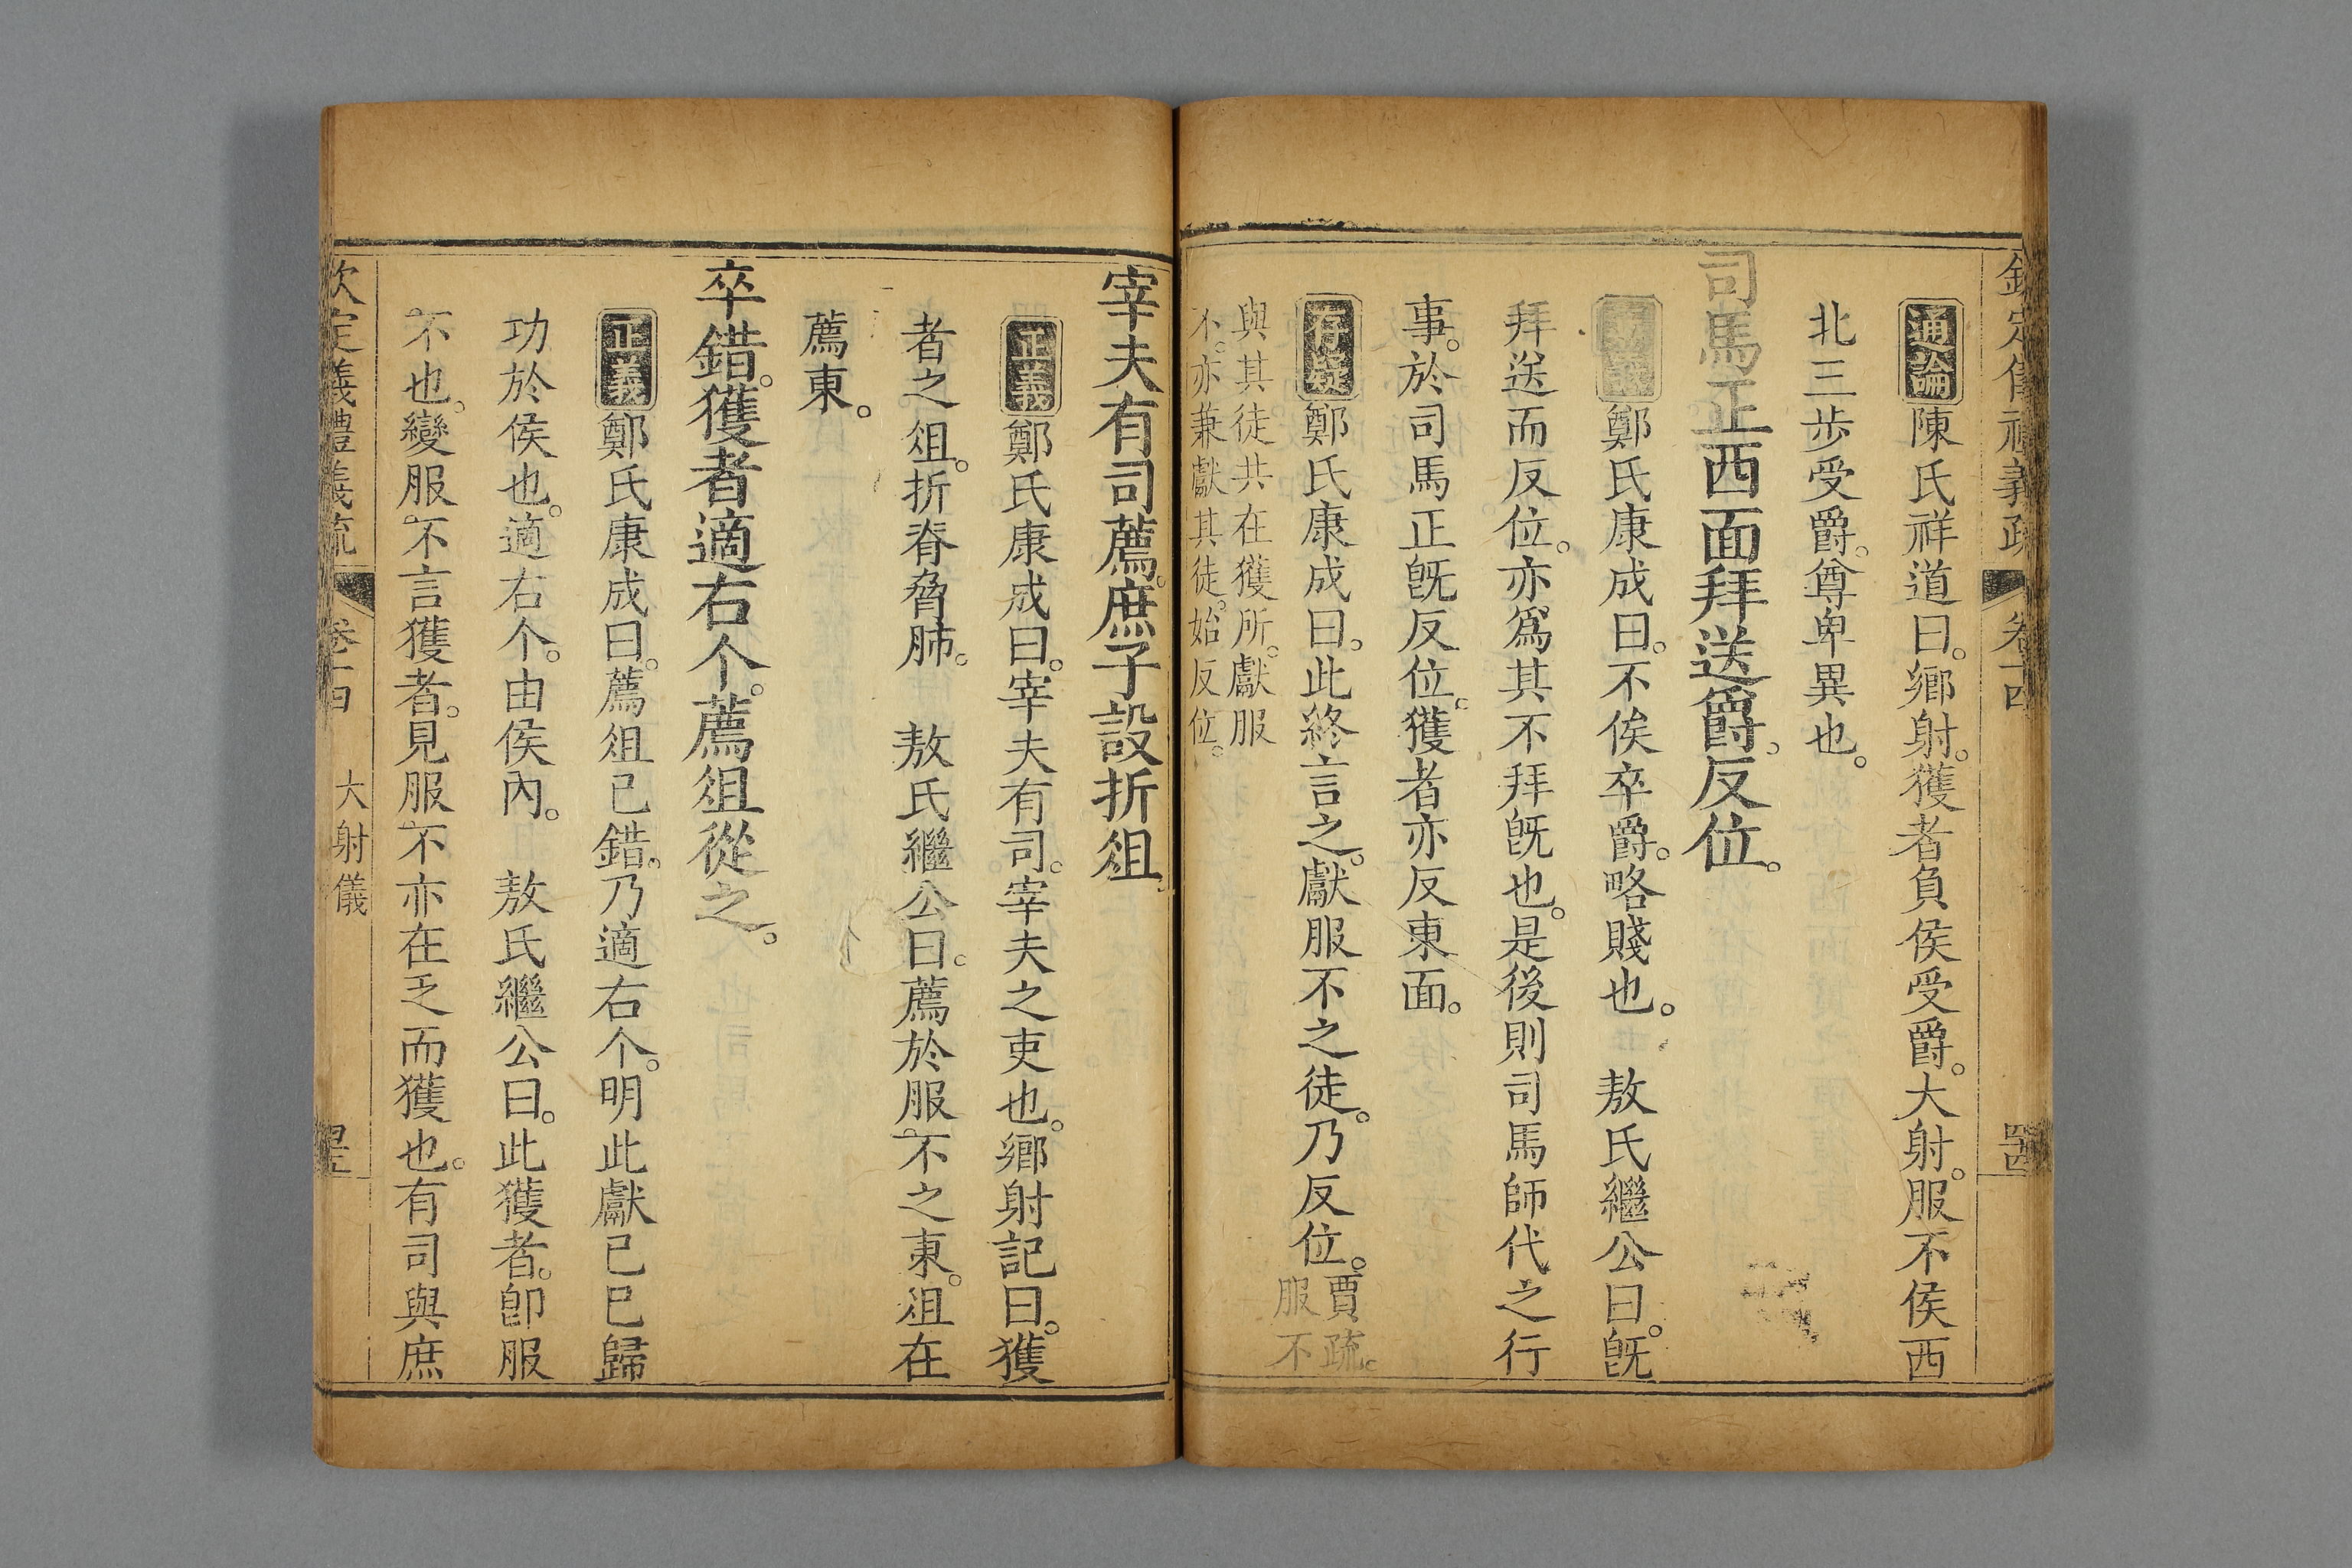 欽定儀禮義疏 卷十四
通論陳氏祥道曰。鄉射。獲者負侯受爵。大射。服不侯西
北三步受爵。尊卑異也。
司馬正西面拜送爵。反位。
正義鄭氏康成曰。不俟卒爵。略賤也。 敖氏繼公曰。旣
拜送而反位。亦爲其不拜旣也。是後則司馬師代之行
事。於司馬正旣反位。獲者亦反東面。
存疑鄭氏康成曰。此終言之。獻服不之徒。乃反位。賈疏。服不
與其徒共在獲所。獻服
不。亦兼獻其徒。始反位。
宰夫有司薦。庶子設折俎。
正義鄭氏康成曰。宰夫有司。宰夫之吏也。鄉射記曰。獲
者之俎。折脊脅肺。 敖氏繼公曰。薦於服不之東。俎在
薦東。
卒錯。獲者適右个。薦俎從之。
正義鄭氏康成曰。薦俎已錯。乃適右个。明此獻已已歸
功於侯也。適右个。由侯內。 敖氏繼公曰。此獲者。卽服
不也。變服不言獲者。見服不亦在乏而獲也。有司與庶
欽定義禮義疏 卷十四 大射儀